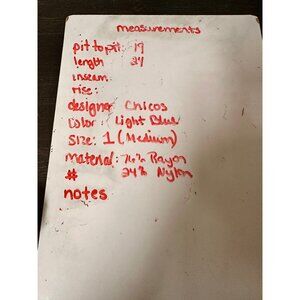 measurements
pit to pit: 19
length 24
inseam:
rise:
designer Chicos
Color: Light Blue
Size: 1 (Medium)
material: 76% Rayon
# 24% Nylon
notes